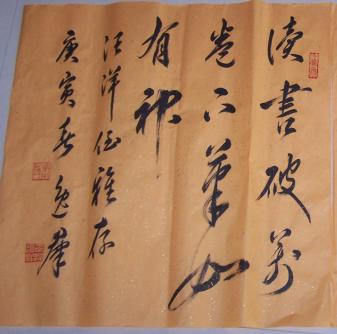 读书破万
卷下笔如
有神
汪洋任雅存
庚寅春逸群